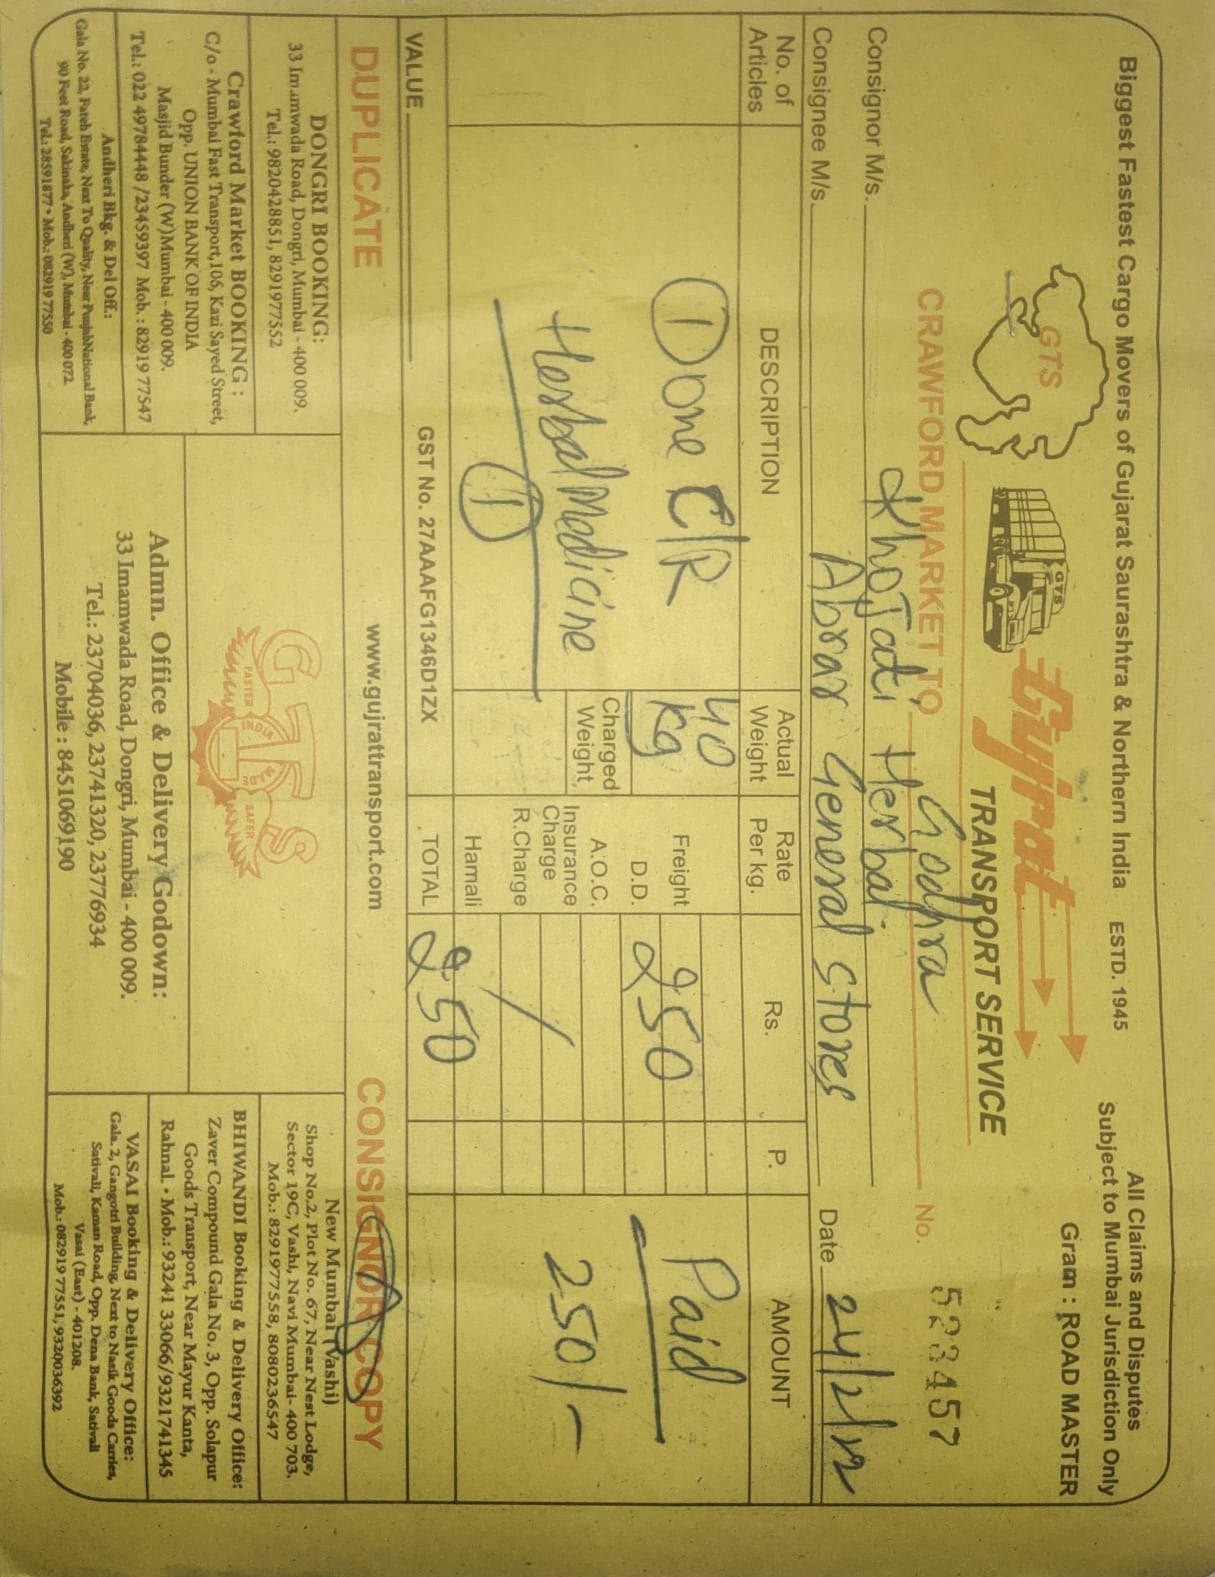 Biggest Fastest Cargo Movers of Gujarat Saurashtra & Northern India ESTD. 1945
All Claims and Disputes
Subject to Mumbai Jurisdiction Only
Gram : ROAD MASTER
GTS
GTS
Gujrat
TRANSPORT SERVICE
CRAWFORD MARKET TO Godhra No. 523457
Consignor M/s. Khojati Herbal
Consignee M/s. Abrar General Stores Date 24/2/22
No. of Articles
DESCRIPTION
Actual Weight
Rate Per kg.
Rs.
P.
AMOUNT
① Done C/R
Herbal Medicine
①
40 kg
Charged Weight
Freight 250
D.D.
A.O.C.
Insurance Charge
R.Charge /
Hamali
TOTAL 250
Paid
250/-
VALUE
GST No. 27AAAFG1346D1ZX
DUPLICATE
www.gujrattransport.com
CONSIGNOR COPY
DONGRI BOOKING:
33 Imamwada Road, Dongri, Mumbai - 400 009.
Tel.: 9820428851, 8291977552
Crawford Market BOOKING :
C/o - Mumbai Fast Transport,106, Kazi Sayed Street,
Opp. UNION BANK OF INDIA
Masjid Bunder (W)Mumbai - 400 009.
Tel.: 022 49784448 /23459397 Mob. : 82919 77547
Andheri Bkg. & Del Off.:
Gala No. 22, Fateh Estate, Next To Quality, Near PunjabNational Bank,
90 Feet Road, Sakinaka, Andheri (W), Mumbai - 400 072
Tel.: 28591877 • Mob.: 082919 77550
GTS
FASTER
INDIA
SAFER
Admn. Office & Delivery Godown:
33 Imamwada Road, Dongri, Mumbai - 400 009.
Tel.: 23704036, 23741320, 23776934
Mobile : 8451069190
New Mumbai (Vashi)
Shop No.2, Plot No. 67, Near Nest Lodge,
Sector 19C, Vashi, Navi Mumbai- 400 703.
Mob.: 8291977558, 8080236547
BHIWANDI Booking & Delivery Office:
Zaver Compound Gala No. 3, Opp. Solapur
Goods Transport, Near Mayur Kanta,
Rahnal. • Mob.: 93241 33066/9321741345
VASAI Booking & Delivery Office:
Gala. 2, Gangotri Building, Next to Nasik Goods Carries,
Sativali, Kaman Road, Opp. Dena Bank, Sativali
Vasai (East) - 401208.
Mob.: 082919 77551, 9320036392